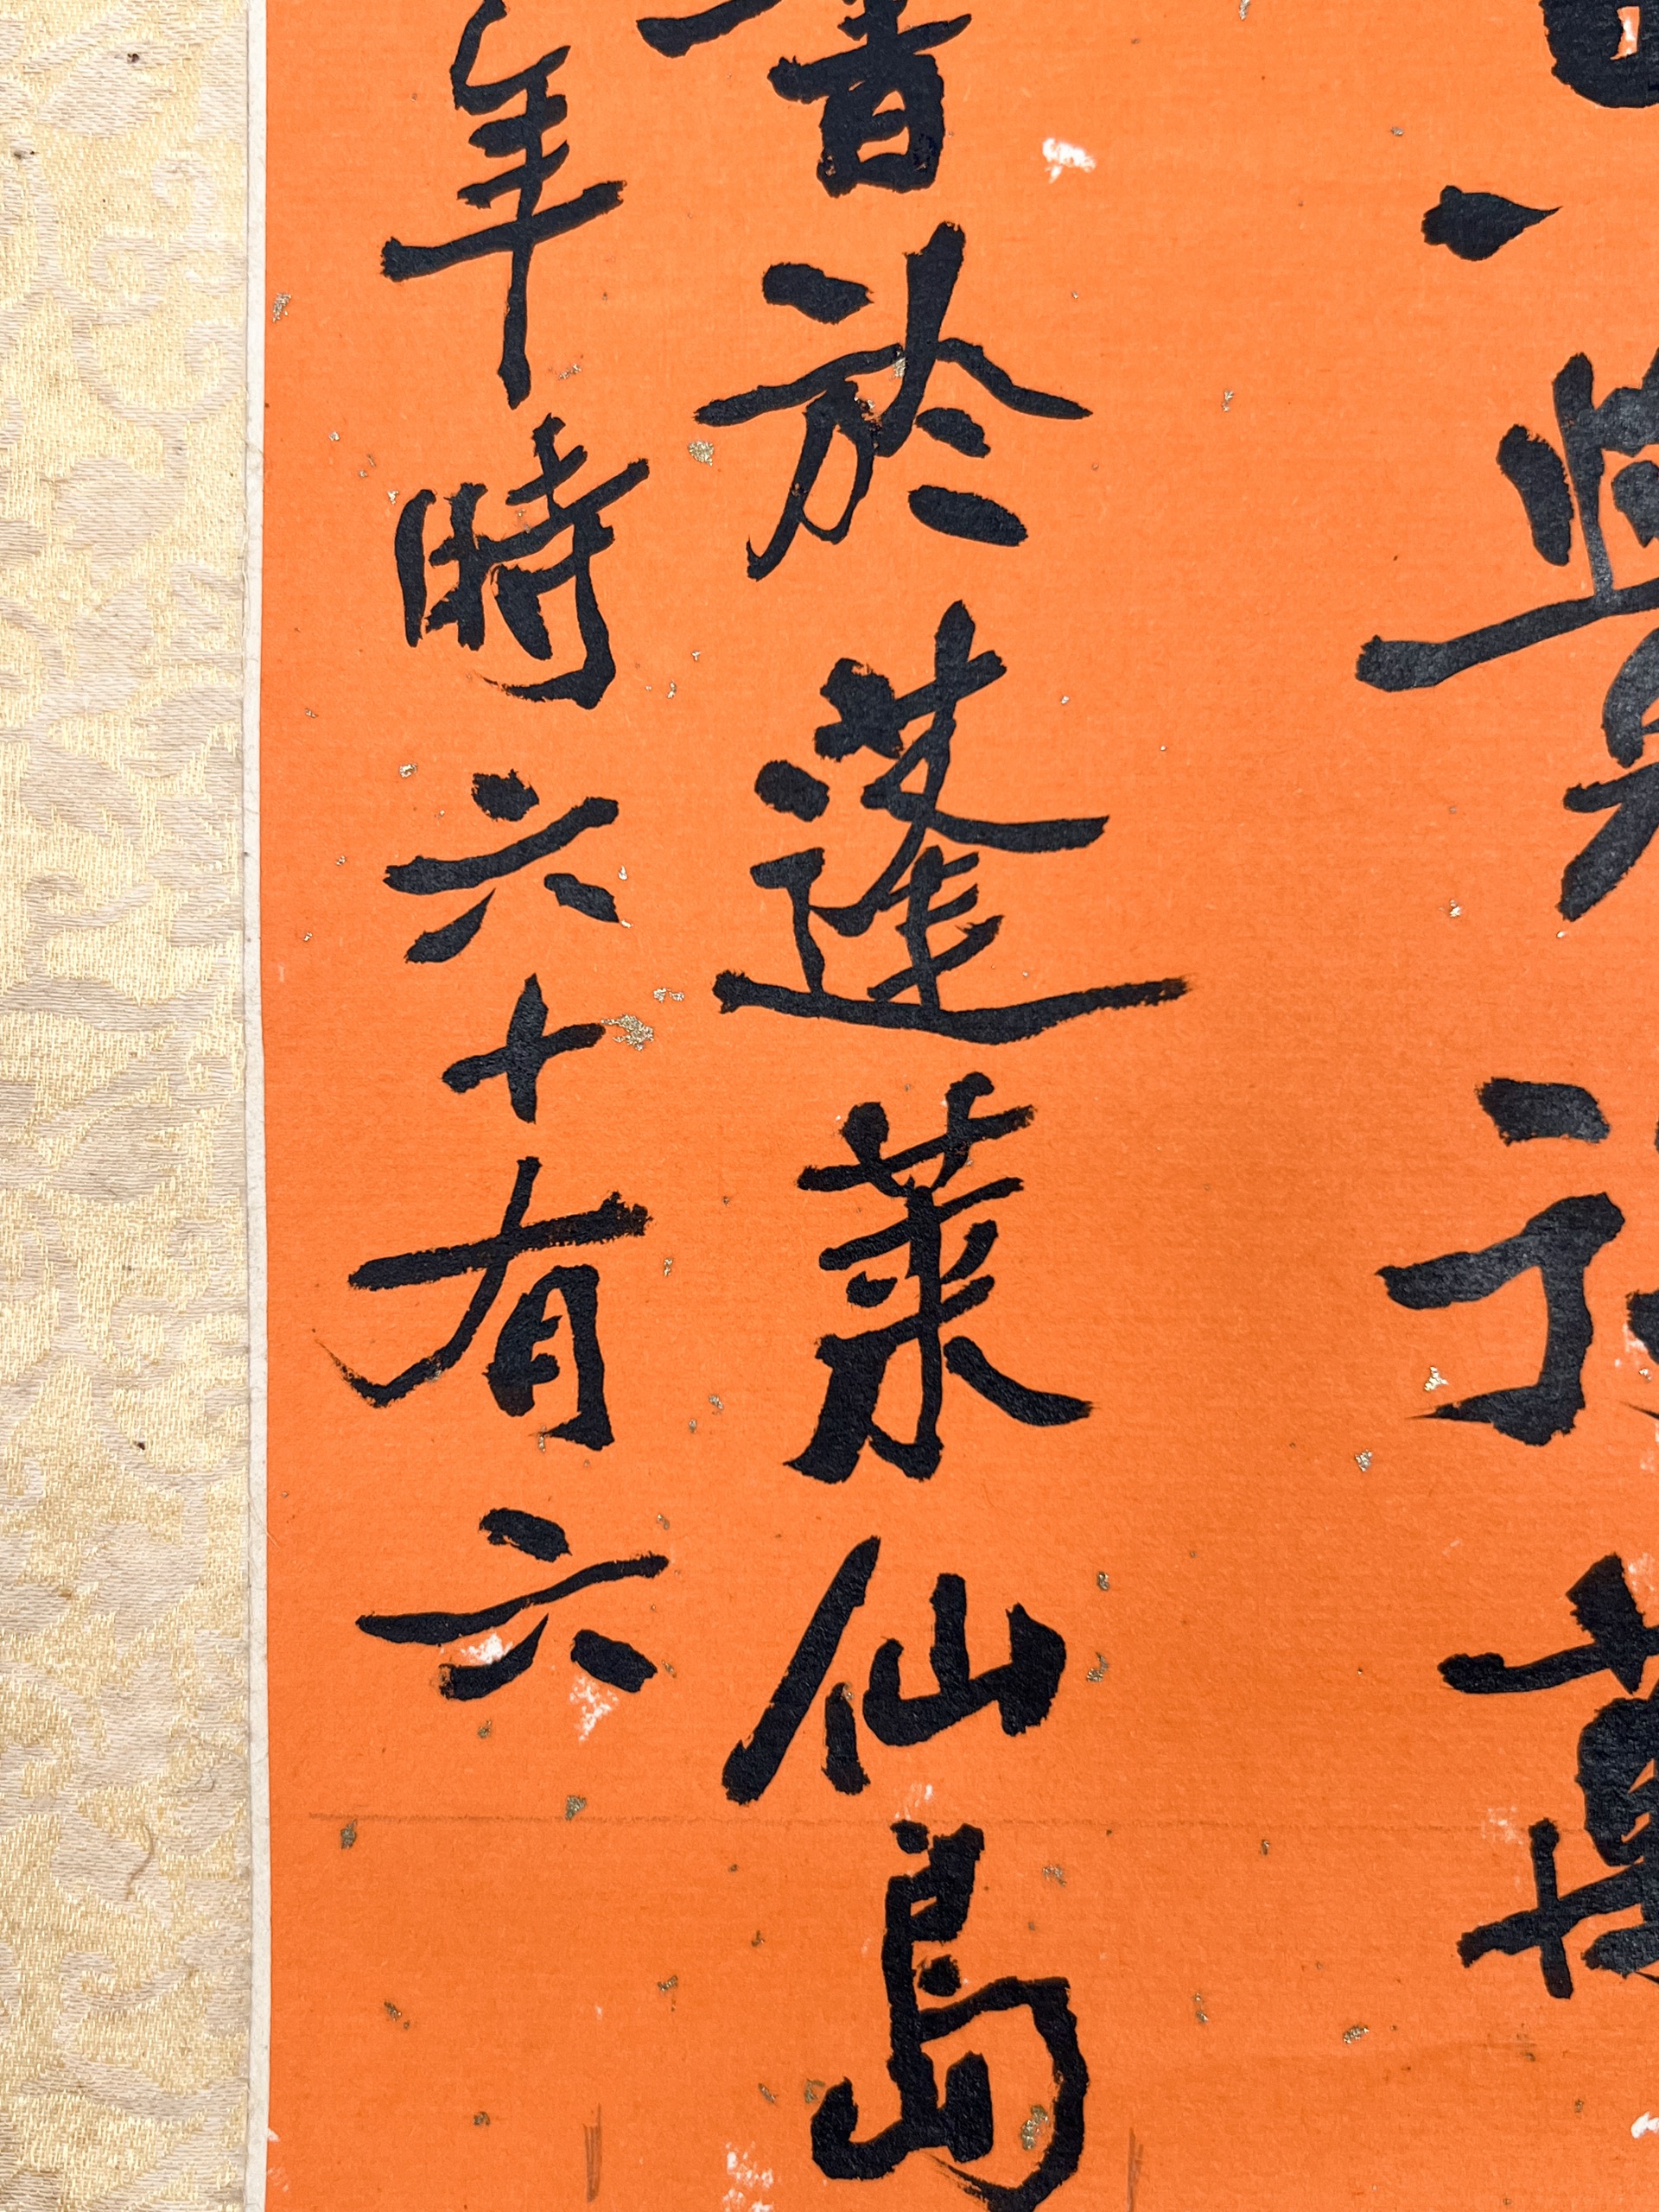 萬
書於蓬萊仙島
年時六十有六